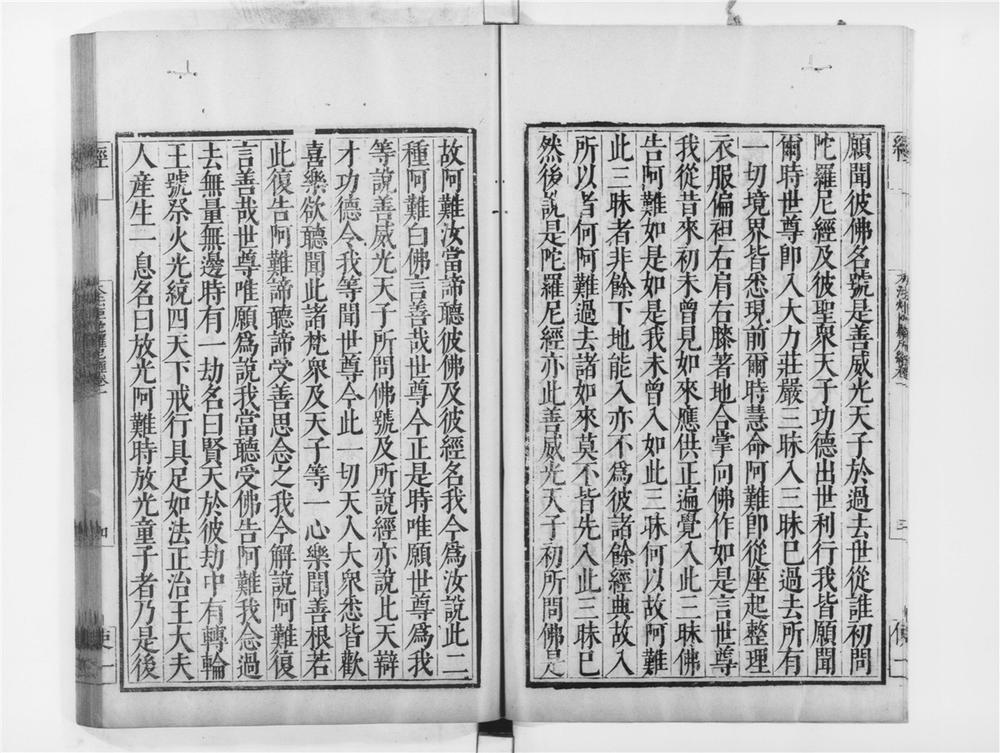 願聞彼佛名號是善威光天子於過去世從誰初問
陀羅尼經及彼聖衆天子功德出世利行我皆願聞
爾時世尊即入大力莊嚴三昧入三昧已過去所有
一切境界皆悉現前爾時慧命阿難即從座起整理
衣服偏袒右肩右膝著地合掌向佛作如是言世尊
我從昔來初未曾見如來應供正遍覺入此三昧佛
告阿難如是如是我未曾入如此三昧何以故阿難
此三昧者非餘下地能入亦不爲彼諸餘經典故入
所以者何阿難過去諸如來莫不皆先入此三昧已
然後說是陀羅尼經亦此善威光天子初所問佛是
故阿難汝當諦聽彼佛及彼經名我今爲汝說此二
種阿難白佛言善哉世尊今正是時唯願世尊爲我
等說善威光天子所問佛號及所說經亦說此天辯
才功德令我等聞世尊今此一切天人大衆悉皆歡
喜樂欲聽聞此諸梵衆及天子等一心樂聞善根若
此復告阿難諦聽諦受善思念之我今解說阿難復
言善哉世尊唯願爲說我當聽受佛告阿難我念過
去無量無邊時有一劫名曰賢天於彼劫中有轉輪
王號祭火光統四天下戒行具足如法正治王大夫
人產生二息名曰放光阿難時放光童子者乃是後
經